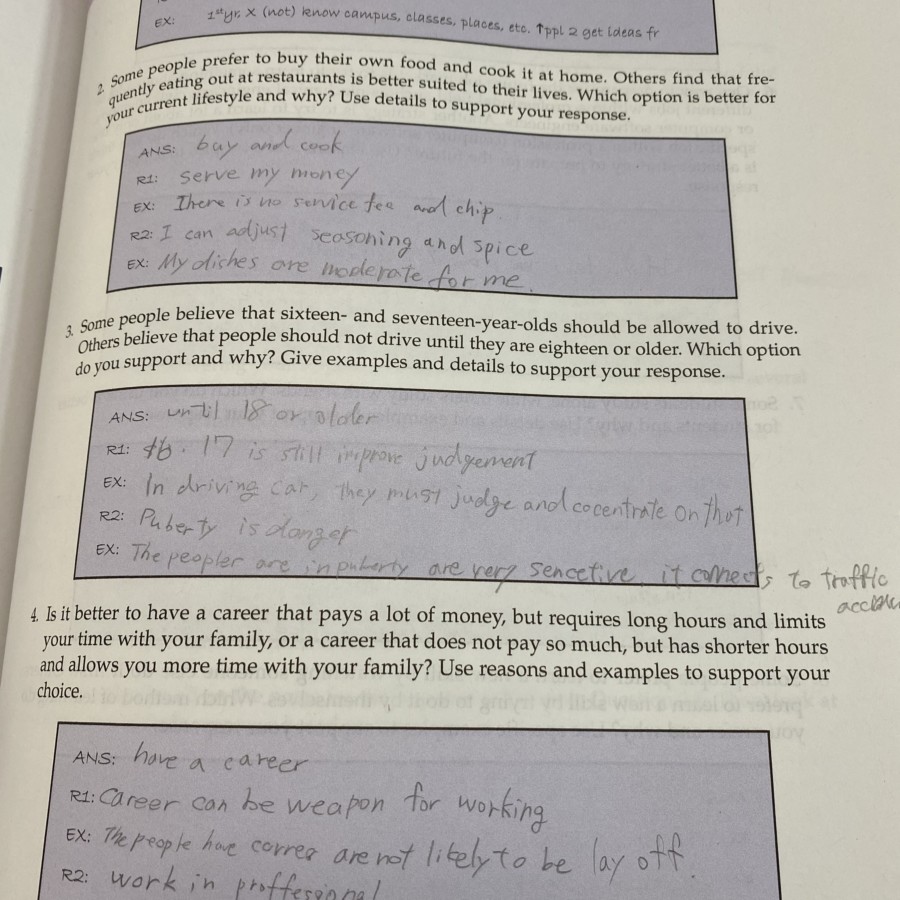 EX: 1st yr, X (not) know campus, classes, places, etc. ↑ppl 2 get ideas fr
2. Some people prefer to buy their own food and cook it at home. Others find that fre-
quently eating out at restaurants is better suited to their lives. Which option is better for
your current lifestyle and why? Use details to support your response.
ANS: buy and cook
R1: serve my money
EX: There is no service fee and chip.
R2: I can adjust seasoning and spice
EX: My dishes are moderate for me.
3. Some people believe that sixteen- and seventeen-year-olds should be allowed to drive.
Others believe that people should not drive until they are eighteen or older. Which option
do you support and why? Give examples and details to support your response.
ANS: until 18 or older
R1: 16. 17 is still improve judgement
EX: In driving car, they must judge and cocentrate on that
R2: Puberty is danger
EX: The peopler are in puberty are very sencetive, it connects to traffic
4. Is it better to have a career that pays a lot of money, but requires long hours and limits
your time with your family, or a career that does not pay so much, but has shorter hours
and allows you more time with your family? Use reasons and examples to support your
choice.
ANS: have a career
R1: Career can be weapon for working
EX: The people have are not likely to be lay off.
R2: work in proffessional